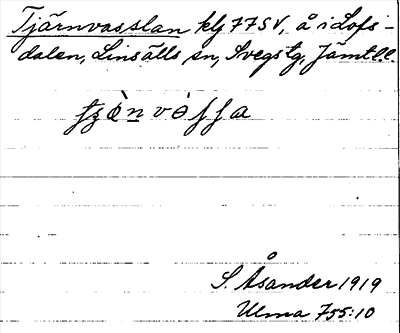 Tjärnvasslan klj 77SV, å i Lofs-
dalen, Linsälls sn, Svegs tg, Jämtl.l.
S. Åsander 1919
Ulma 755:10